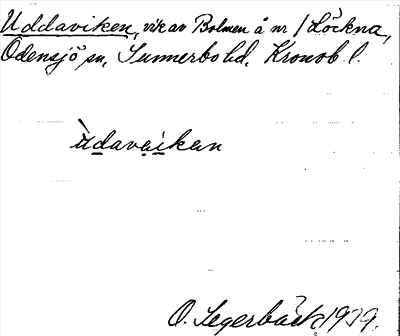 Uddaviken, vik av Bolmen å nr 1 Löckna,
Odensjö sn, Sunnerbo hd, Kronob l.
ùdavaikan
O. Segerbäck 1929.